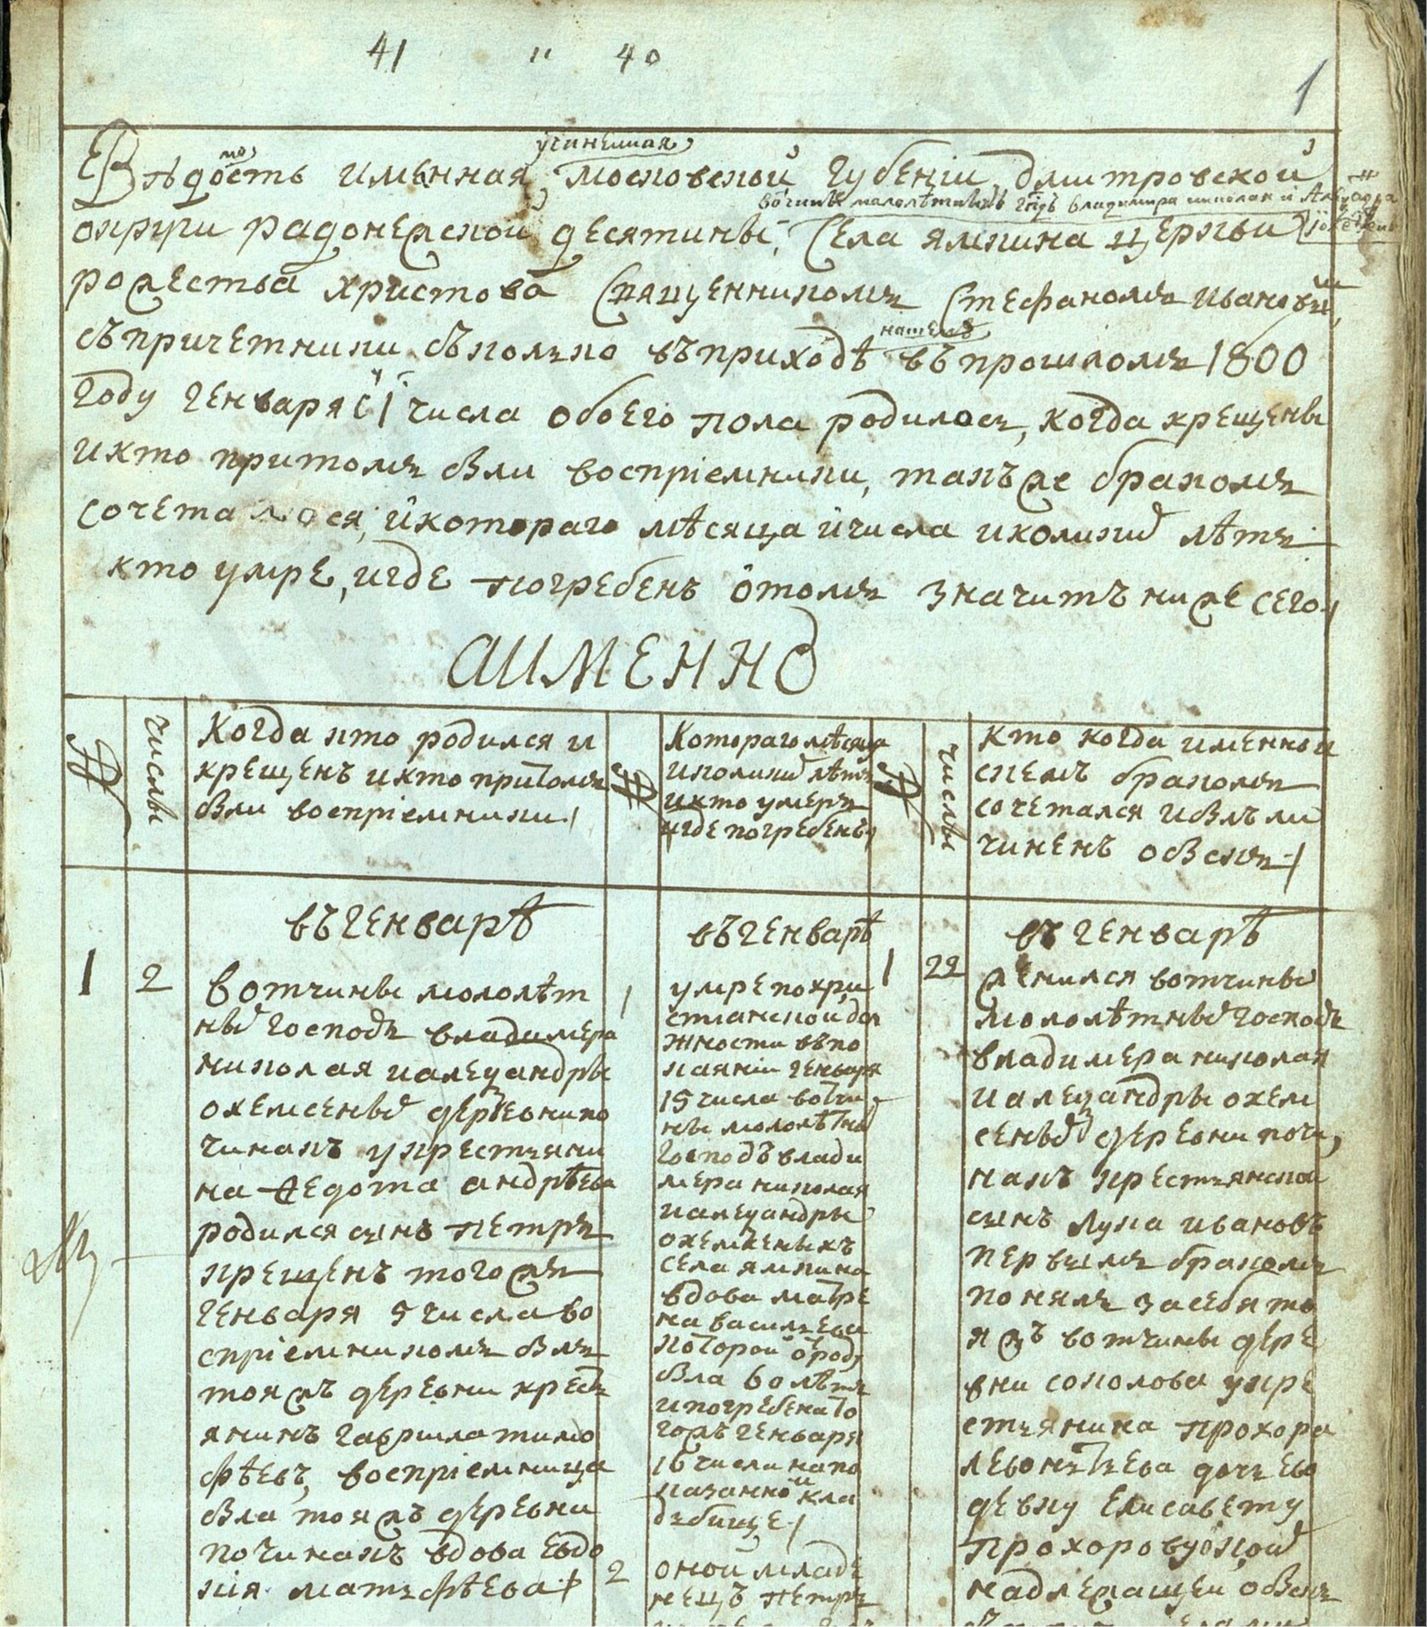 41 " 40
1
учиненная
Вѣдомость имянная Московской губернiи, дмитровской
вотчины малолѣтныхъ гдъ владимира николая и
округи радонежской десятины, Села ямкина церкви
рождества христова Священникомъ Стефаномъ Ивановым
нашемъ
съпричетники сколько въприходѣ въпрошломъ 1800
году генваря с 1 числа обоего пола родилось, когда крещены
икто притомъ были воспрiемники, такъже бракомъ
сочеталося, икотораго мѣсяца ичисла иколикихъ лѣтъ
кто умре, игде погребенъ отомъ значитъ ниже сего
АИМЕННО
числы
Когда кто родился и
крещенъ икто притомъ
были воспрiемники
Котораго мѣсяца
иколикихъ лѣтъ
икто умеръ
игде погребенъ
числы
кто когда именно и
скемъ бракомъ
сочетался ибылъ ли
чиненъ обыскъ
въ генварѣ
1
2
вотчины малолѣт
ныхъ господъ владимера
николая иалеѯандры
деревни по
чинакъ укрестьяни
на Ѳедота андрѣева
родился сынъ петръ
крещенъ тогожъ
генваря 5 числа во
спрiемникомъ былъ
тояжъ деревни крест
янинъ гаврила тимо
фѣевъ, воспрiемница
была тояжъ деревни
починакъ вдова евдо
кiя матьфѣева
въ генварѣ
1
умре похри
стианской дол
жности въпо
каянiи генваря
15 числа вотчи
ны малолѣтны
господъ влади
мера николая
иалеѯандры
села ямкина
вдова матре
на васильева
которой отроду
была 60 лѣтъ
ипогребена то
гожъ генваря
16 числа напо
казанной кла
дбище
2
оной младе
нецъ петръ
въ генварѣ
1
22
женился вотчины
малолѣтныхъ господъ
владимера николая
иалеѯандры
деревни почи
накъ крестьянска
сынъ Лука ивановъ
первымъ бракомъ
понялъ засебя то
яжъ вотчины дере
вни соколова укре
стьянина прохора
леонтьева дочь ево
девку елисавету
прохорову окой
надлежащей обыскъ